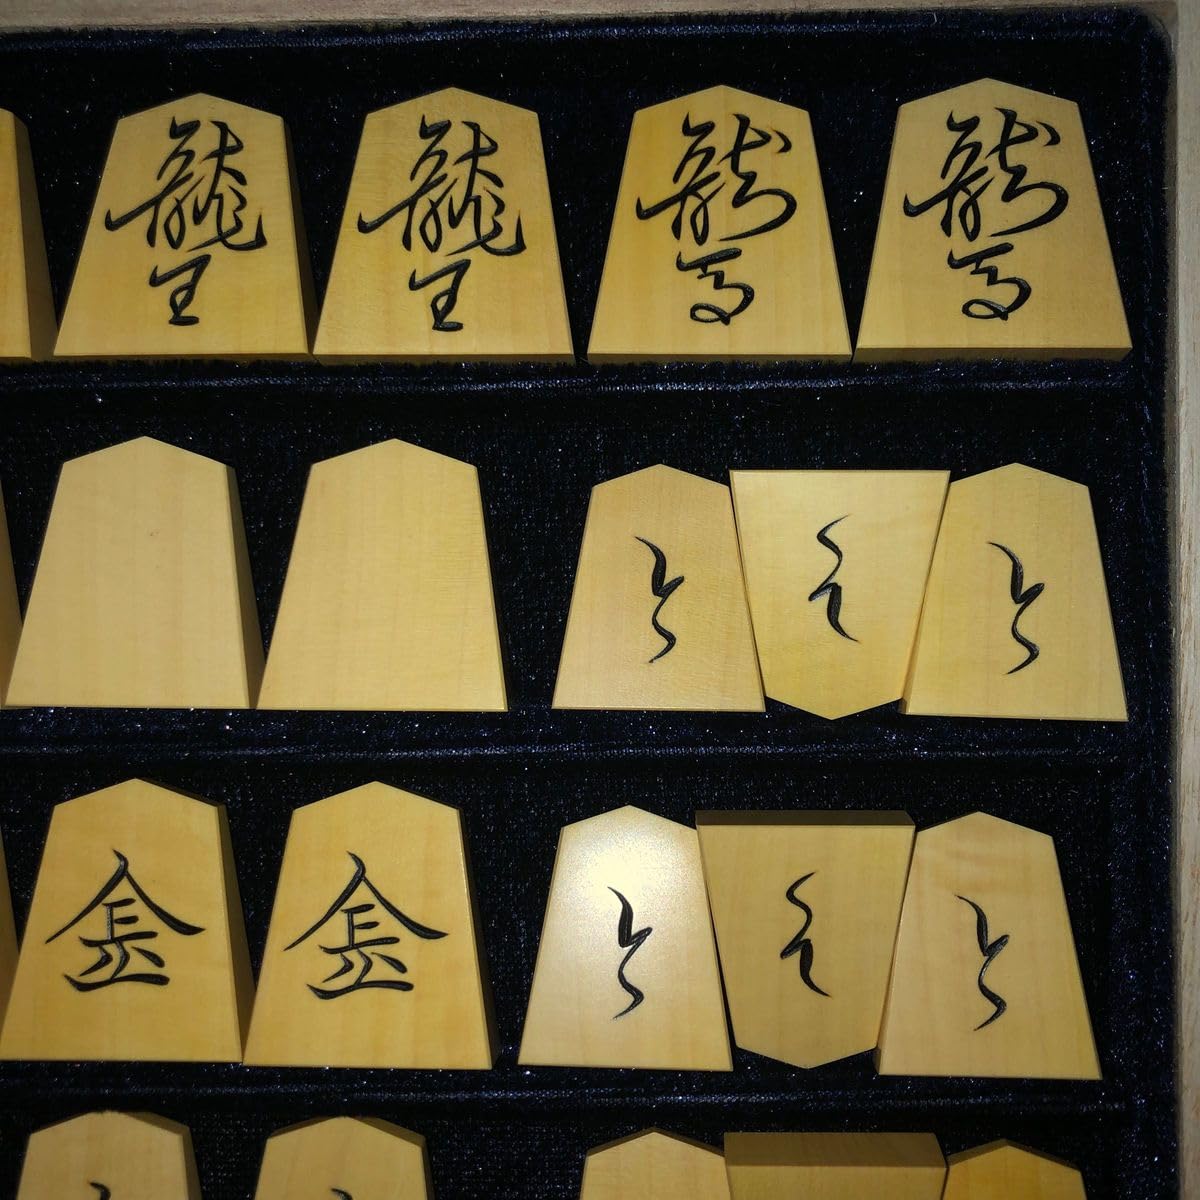 龍王
龍王
龍馬
龍馬
と
と
と
金
金
と
と
と